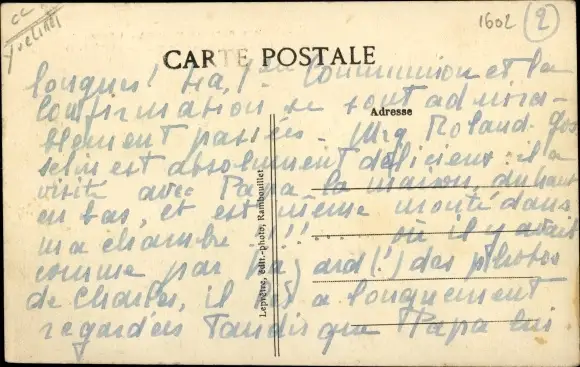 cc
Yvelines
1602
2
CARTE POSTALE
Adresse
longues! La 1ère Communion et la
Confirmation se sont admira-
blement passées. Mgr Roland-Gos
selin est absolument délicieux : il a
visité avec Papa la maison, du haut
en bas, et est même monté dans
ma chambre !!! ..... où il y avait
comme par hasard (!) des photos
de Charles, il les a longuement
regardées tandis que Papa lui
Leprêtre, édit.-photo, Rambouillet